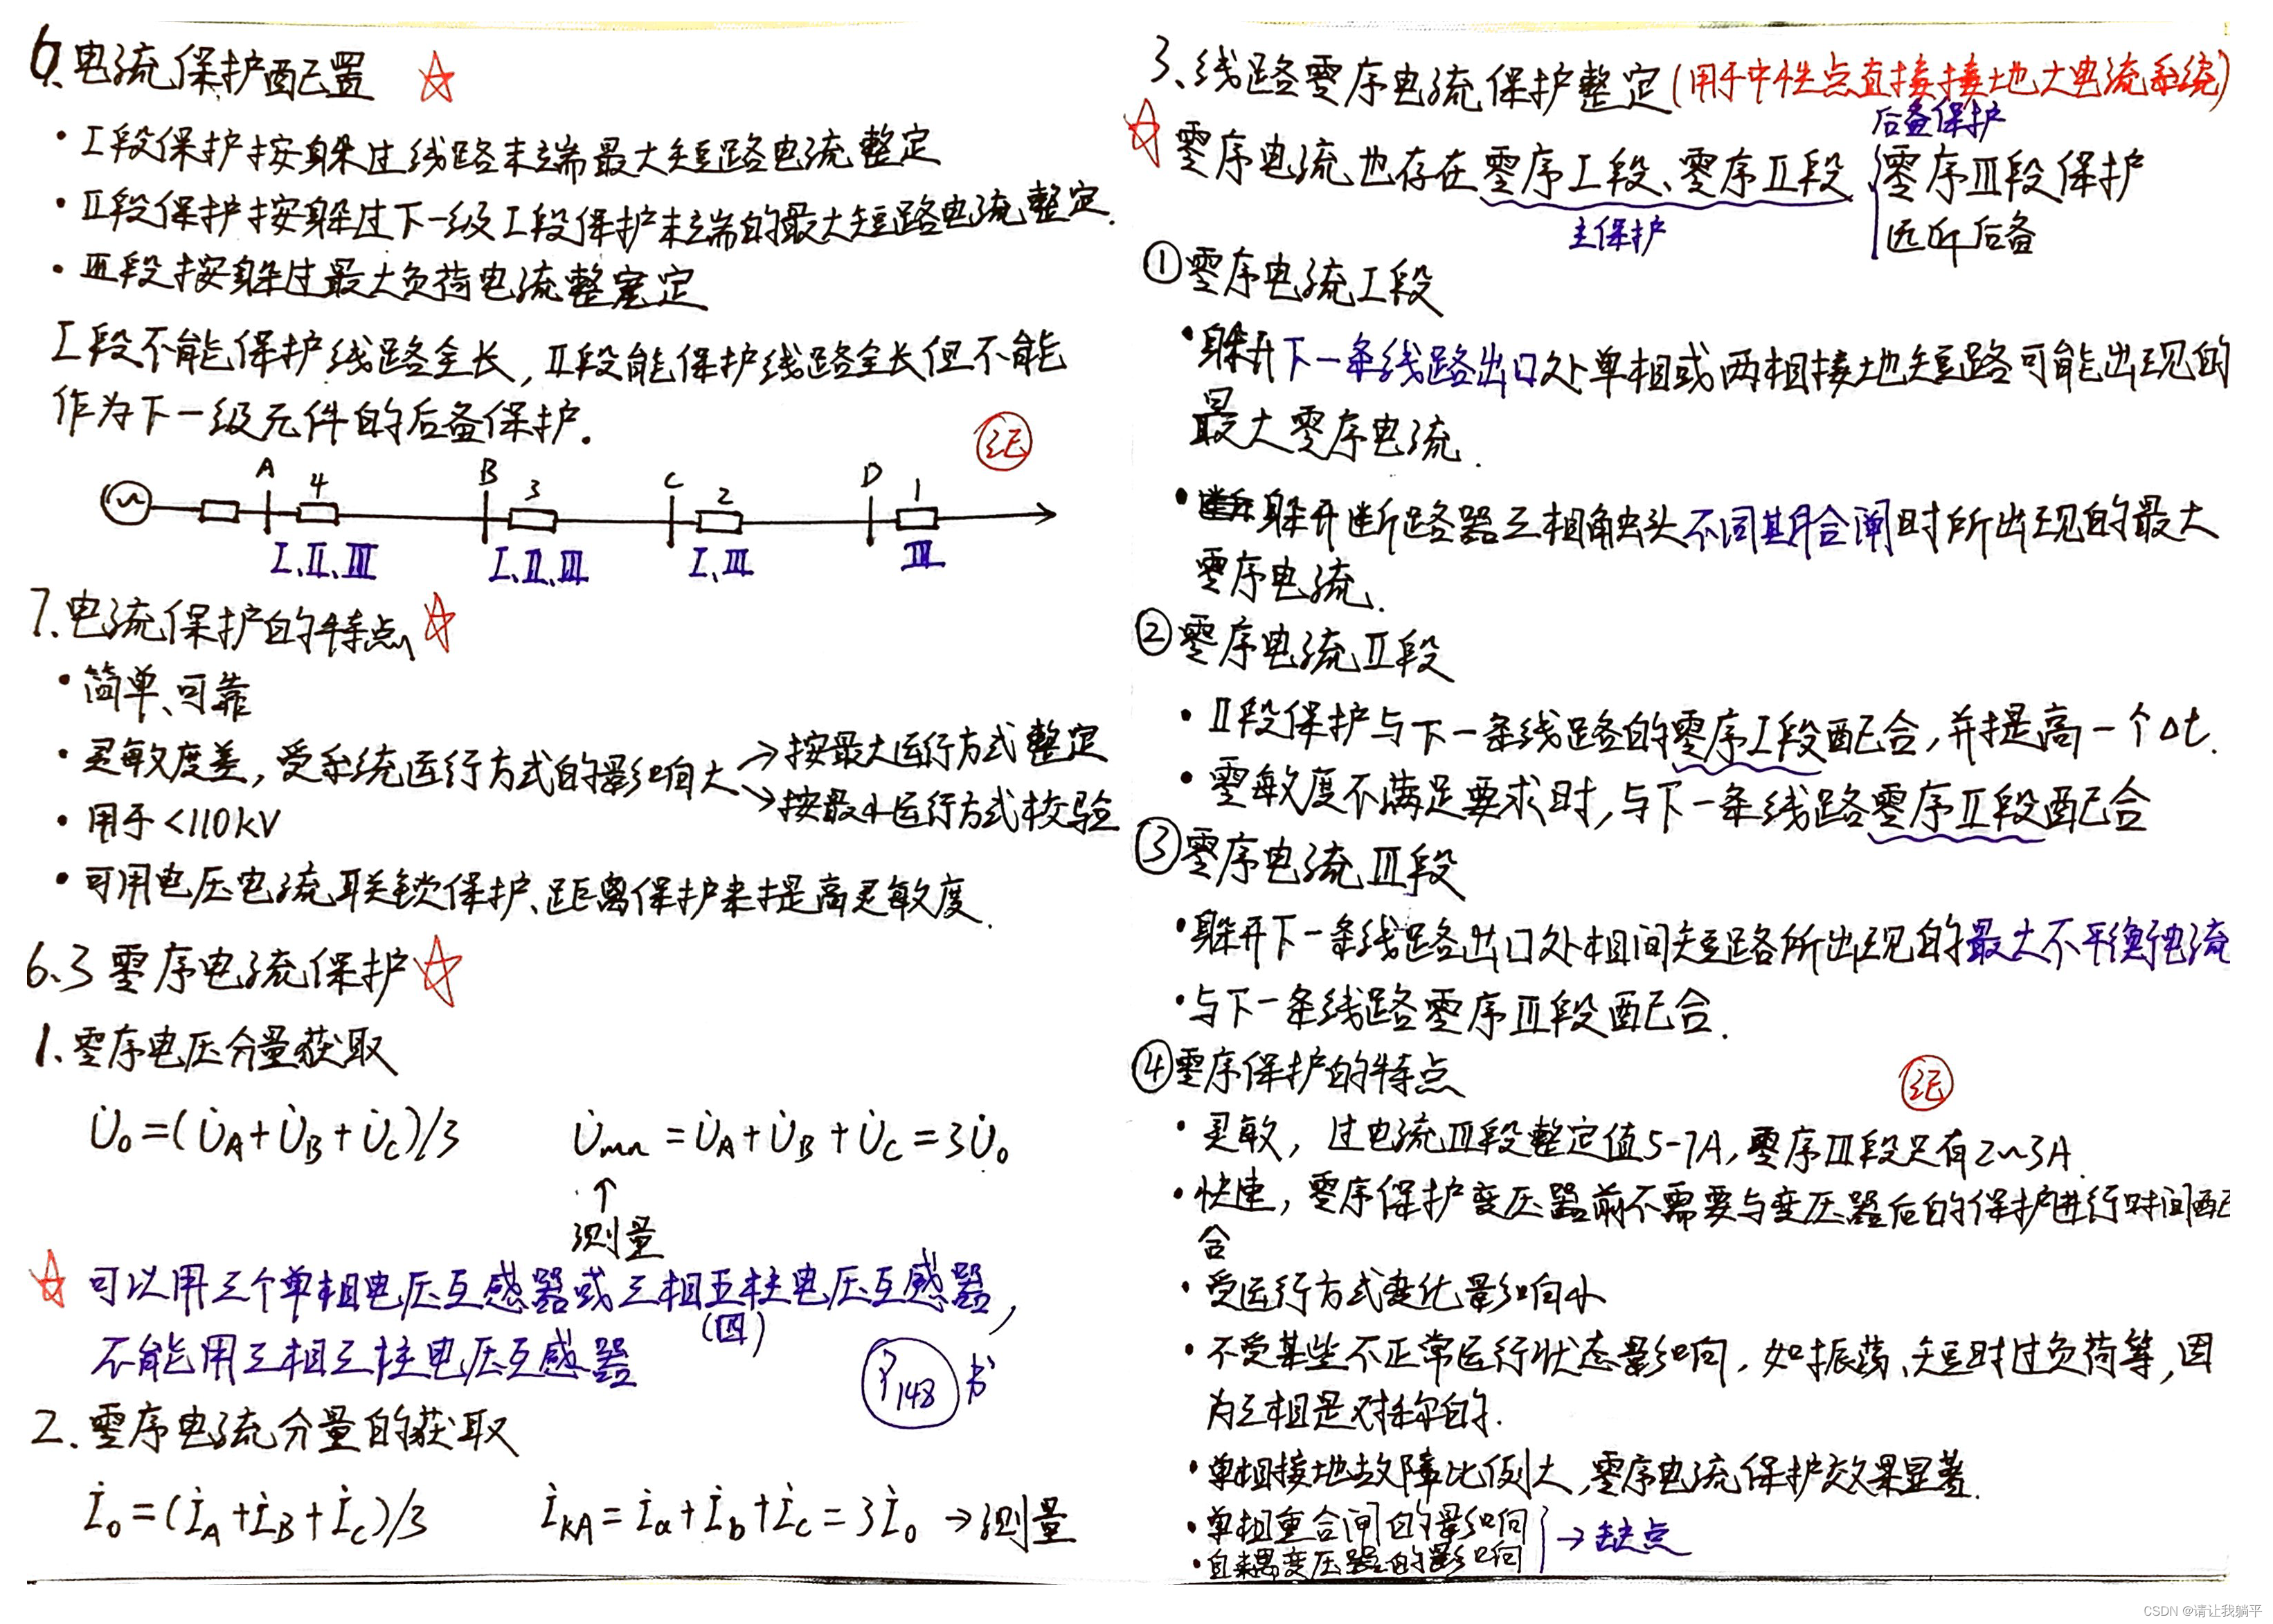 6、电流保护配置
• I段保护按躲过线路末端最大短路电流整定
• II段保护按躲过下一级I段保护末端的最大短路电流整定.
• III段按躲过最大负荷电流整定
I段不能保护线路全长,II段能保护线路全长但不能
作为下一级元件的后备保护.
记
A 4 B 3 C 2 D 1
I、II、III I、II、III I、III III
7.电流保护的特点
• 简单、可靠
• 灵敏度差,受系统运行方式的影响大 →按最大运行方式整定
→按最小运行方式校验
• 用于<110kV
• 可用电压电流联锁保护、距离保护来提高灵敏度.
6.3零序电流保护
1、零序电压分量获取
U̇₀=(U̇A+U̇B+U̇C)/3 U̇mn=U̇A+U̇B+U̇C=3U̇₀
↑
测量
可以用三个单相电压互感器或三相五柱电压互感器,
(四)
不能用三相三柱电压互感器
P148 书
2.零序电流分量的获取
İ₀=(İA+İB+İC)/3 İKA=İa+İb+İc=3İ₀→测量
3、线路零序电流保护整定(用于中性点直接接地大电流系统)
后备保护
零序电流也存在零序I段、零序II段、零序III段保护
主保护 远近后备
①零序电流I段
•躲开下一条线路出口处单相或两相接地短路可能出现的
最大零序电流.
•躲开断路器三相触头不同期合闸时所出现的最大
零序电流.
②零序电流II段
• II段保护与下一条线路的零序I段配合,并提高一个Δt.
• 零敏度不满足要求时,与下一条线路零序II段配合
③零序电流III段
•躲开下一条线路出口处相间短路所出现的最大不平衡电流
•与下一条线路零序III段配合.
④零序保护的特点
记
• 灵敏,过电流III段整定值5-7A,零序III段只有2~3A.
• 快速,零序保护变压器前不需要与变压器后的保护进行时间配
合
• 受运行方式变化影响小
• 不受某些不正常运行状态影响,如振荡、短时过负荷等,因
为三相是对称的.
• 单相接地故障比例大,零序电流保护效果显著.
• 单相重合闸的影响
→缺点
• 自耦变压器的影响
CSDN @请让我躺平